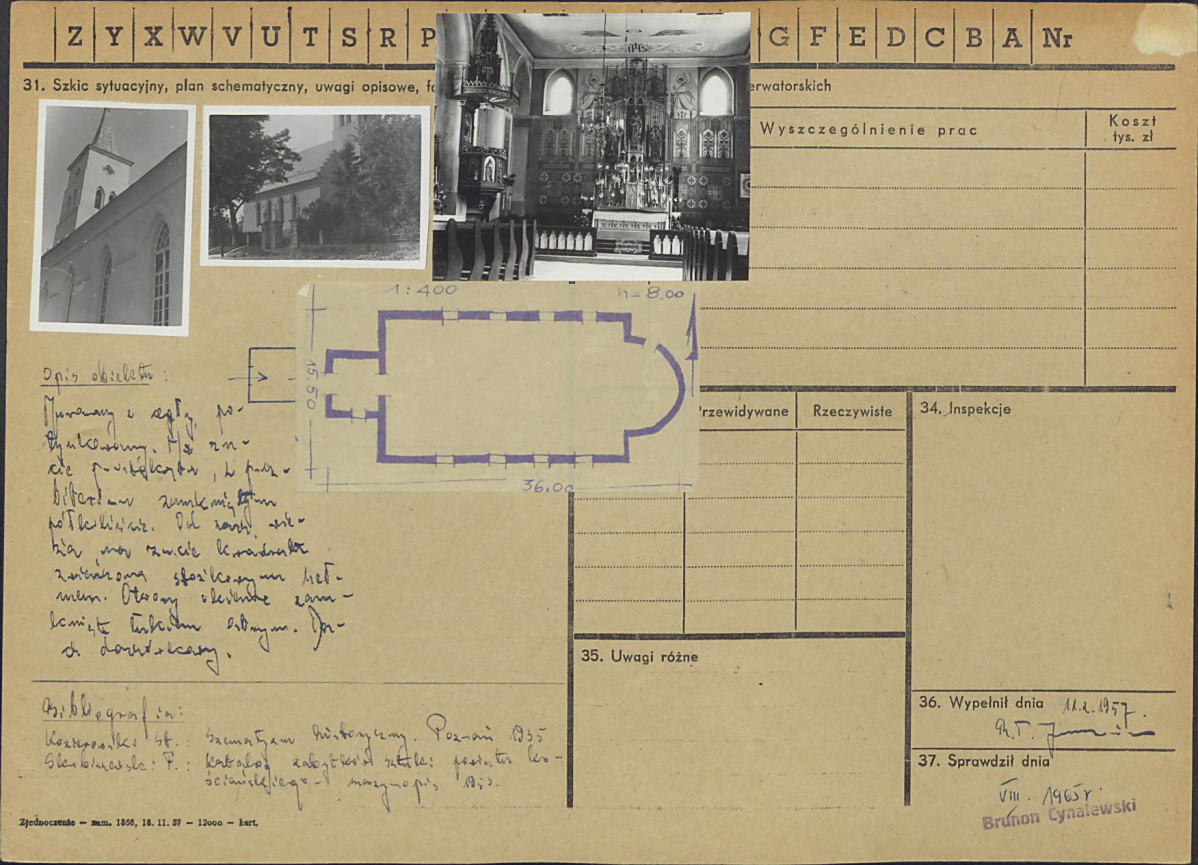 Z Y X W V U T S R P G F E D C B A Nr
31. Szkic sytuacyjny, plan schematyczny, uwagi opisowe, erwatorskich
Wyszczególnienie prac
Koszt
tys. zł
1:400
h = 8.00
15.50
36.00
Opis obiektu:
Murowany z cegły, po-
tynkowany. Na rzu-
cie prostokąta, z prez-
biterium zamkniętym
półkoliście. Od zach. wie-
ża na rzucie kwadratu
zwieńczona stożkowym heł-
mem. Otwory okienne zam-
knięte łukiem ostrym. Da-
ch dachówkowy.
Przewidywane
Rzeczywiste
34. Inspekcje
35. Uwagi różne
Bibliografia:
Kozierowski St.: Szematyzm historyczny. Poznań 1935
Skubiszewski P.: Katalog zabytków sztuki powiatu ko-
ściańskiego - maszynopis 1953.
36. Wypełnił dnia
37. Sprawdził dnia
VIII. 1965 r.
Brunon Cynalewski
Zjednoczenie — zam. 1858, 18. 11. 57 — 12000 — kart.